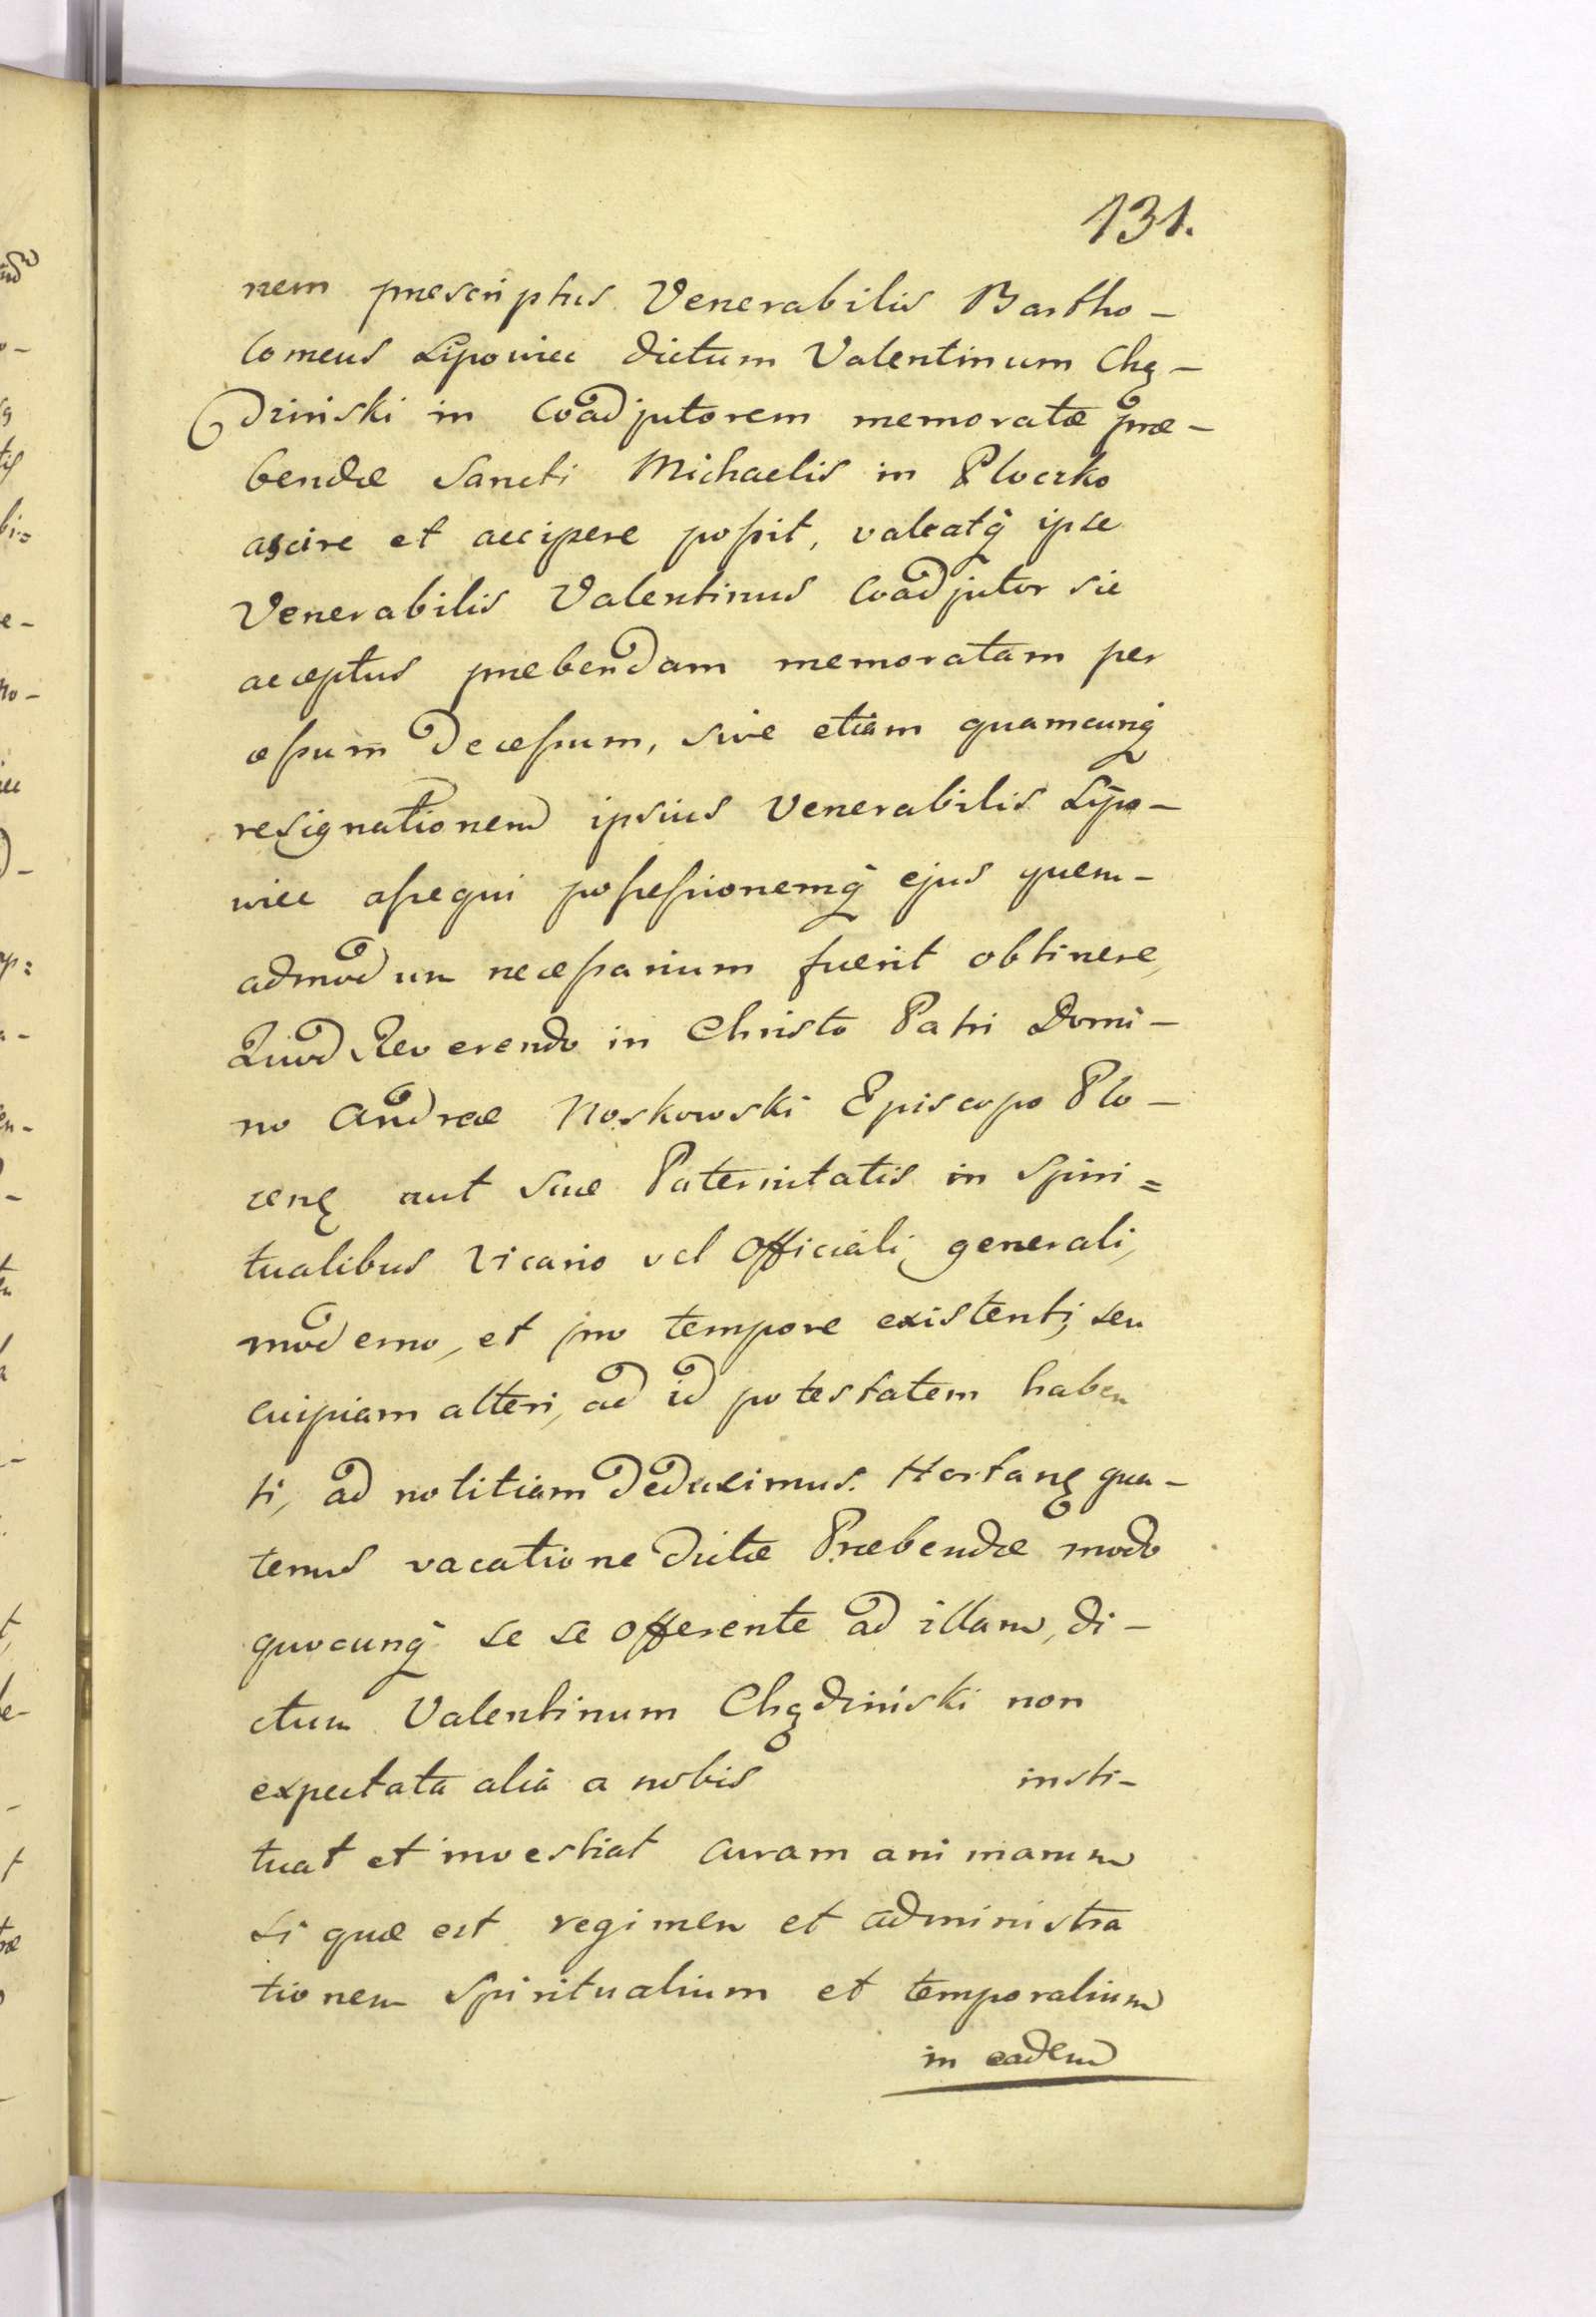 131.
nem præscriptus Venerabilis Bartho-
lomeus Lipowiec dictum Valentinum Chą-
dziński in Coadjutorem memoratæ præ-
bendæ Sancti Michaelis in Ploczko
ascire et accipere poßit, valeatq̃ ipse
Venerabilis Valentinus Coadjutor sic
acceptus præbendam memoratam per
ceßum deceßum, sive etiam quamcunq̃
resignationem ipsius Venerabilis Lipo-
wiec aßequi poßeßionemq̃ ejus quem-
admodum neceßarium fuerit obtinere,
Quod Reverendo in Christo Patri Domi-
no Andreæ Noskowski Episcopo Plo-
cenę aut suæ Paternitatis in Spiri=
tualibus Vicario vel Officiali, generali,
moderno, et pro tempore existenti, seu
cuipiam alteri, ad id potestatem haben
ti, ad notitiam deduximus. Hortanę qua-
tenus vacatione dictæ Præbendæ modo
quocunq̃ se se offerente ad illam, di-
ctum Valentinum Chądziński non
expectata alia a nobis insti-
tuat et investiat curam animarum
si quæ est regimen et administra
tionem Spiritualium et temporalium
in eadem